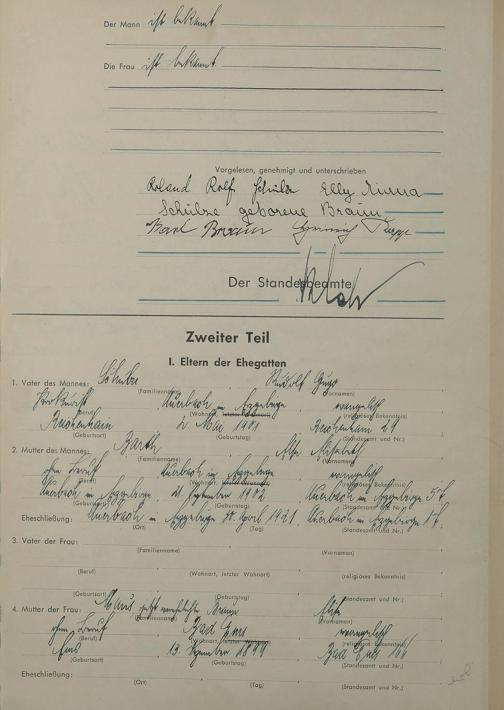 Der Mann ist bekannt
Die Frau ist bekannt
Vorgelesen, genehmigt und unterschrieben
Roland Rolf Schulze Elly Anna
Schulze geborene Braun
Karl Braun Heinrich
Der Standesbeamte
Zweiter Teil
I. Eltern der Ehegatten
1. Vater des Mannes: Schulze Rudolf Hugo
(Familienname) (Vornamen)
Auerbach im Erzgebirge evangelisch
(Beruf) (Wohnort, letzter Wohnort) (religiöses Bekenntnis)
Reichenhain 2. Mai 1901 Reichenhain 24
(Geburtsort) (Geburtstag) (Standesamt und Nr.)
2. Mutter des Mannes: Barth Elisabeth
(Familienname) (Vornamen)
ohne Beruf Auerbach im Erzgebirge evangelisch
(Beruf) (Wohnort, letzter Wohnort) (religiöses Bekenntnis)
Auerbach im Erzgebirge 1902 Auerbach im Erzgebirge
(Geburtsort) (Geburtstag) (Standesamt und Nr.)
Eheschließung: Auerbach im Erzgebirge April 1921 Auerbach im Erzgebirge
(Ort) (Tag) (Standesamt und Nr.)
3. Vater der Frau:
(Familienname) (Vornamen)
(Beruf) (Wohnort, letzter Wohnort) (religiöses Bekenntnis)
(Geburtsort) (Geburtstag) (Standesamt und Nr.)
4. Mutter der Frau: Maus jetzt verehelichte Braun
(Familienname) (Vornamen)
ohne Beruf Bad Ems evangelisch
(Beruf) (Wohnort, letzter Wohnort) (religiöses Bekenntnis)
Ems 13. 1899 Bad Ems
(Geburtsort) (Geburtstag) (Standesamt und Nr.)
Eheschließung:
(Ort) (Tag) (Standesamt und Nr.)